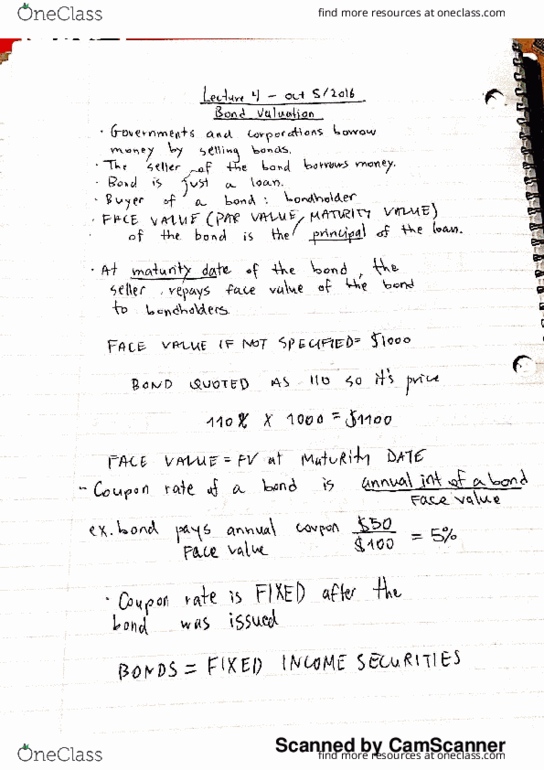 OneClass
find more resources at oneclass.com
Lecture 4 - oct 5/2016
Bond Valuation
· Governments and corporations borrow
money by selling bonds.
· The seller of the bond borrows money.
· Bond is just a loan.
· Buyer of a bond: bondholder
· FACE VALUE (PAR VALUE, MATURITY VALUE)
of the bond is the principal of the loan.
· At maturity date of the bond, the
seller repays face value of the bond
to bondholders.
FACE VALUE IF NOT SPECIFIED = $1000
BOND QUOTED AS 110 SO it's price
110% X 1000 = $1100
FACE VALUE = FV at MATURITY DATE
- Coupon rate of a bond is annual int of a bond
Face value
ex. bond pays annual coupon $50
Face value $100 = 5%
· Coupon rate is FIXED after the
bond was issued
BONDS = FIXED INCOME SECURITIES
Scanned by CamScanner
OneClass
find more resources at oneclass.com